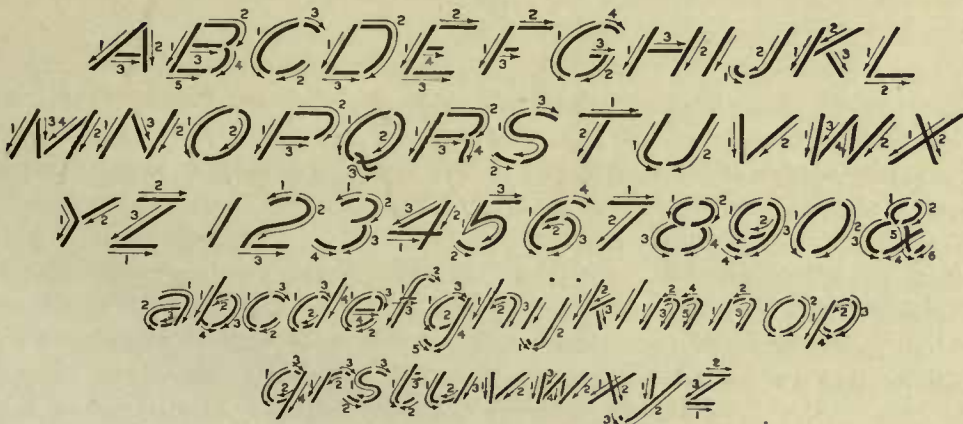 ABCDEFGHIJKL
MNOPQRSTUVWX
YZ1234567890&
abcdefghijklmnop
qrstuvwxyz